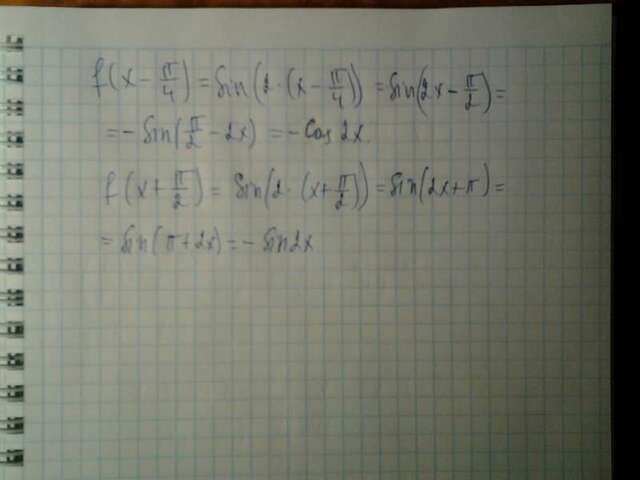 f(x - π/4) = sin(2 · (x - π/4)) = sin(2x - π/2) =
= - sin(π/2 - 2x) = - cos 2x.
f(x + π/2) = sin(2 · (x + π/2)) = sin(2x + π) =
= sin(π + 2x) = - sin 2x